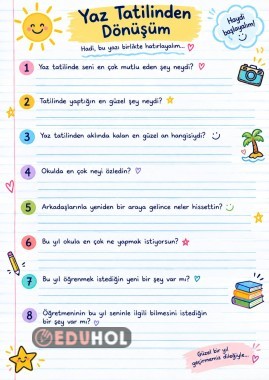 Yaz Tatilinden
Dönüşüm
Hadi, bu yazı birlikte hatırlayalım...
Haydi
başlayalım!
1 Yaz tatilinde seni en çok mutlu eden şey neydi?
2 Tatilinde yaptığın en güzel şey neydi?
3 Yaz tatilinden aklında kalan en güzel an hangisiydi?
4 Okulda en çok neyi özledin?
5 Arkadaşlarınla yeniden bir araya gelince neler hissettin?
6 Bu yıl okula en çok ne yapmak istiyorsun?
7 Bu yıl öğrenmek istediğin yeni bir şey var mı?
8 Öğretmeninin bu yıl seninle ilgili bilmesini istediğin
bir şey var mı?
EDUHOL
Güzel bir yıl
geçirmemiz dileğiyle...